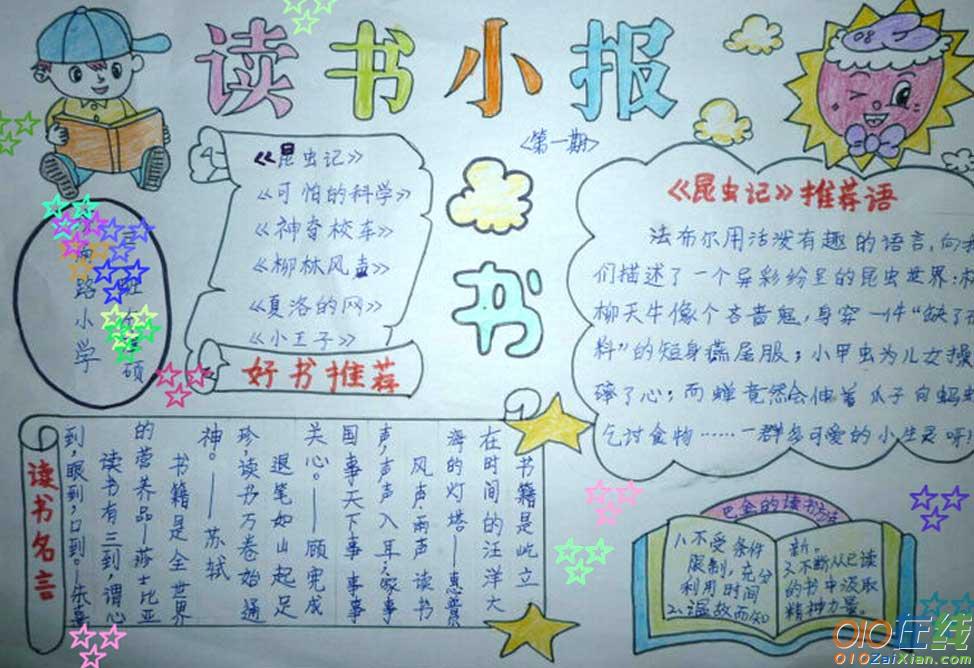 读书小报
<第一期>
《昆虫记》
《可怕的科学》
《神奇校车》
《柳林风声》
《夏洛的网》
《小王子》
好书推荐
书
路小学
硕
《昆虫记》推荐语
法布尔用活泼有趣的语言,向我
们描述了一个异彩纷呈的昆虫世界:
柳天牛像个吝啬鬼,身穿一件“缺了
料”的短身燕尾服;小甲虫为儿女操
碎了心;而蝉竟然会伸着爪子向蚂蚁
乞讨食物……一群多可爱的小生灵呀
书籍是屹立
在时间的汪洋大
海的灯塔。—惠普
风声雨声读书
声,声声入耳;家事
国事天下事事事
关心。——顾宪成
退笔如山起足
珍,读书万卷始通
神。——苏轼
书籍是全世界
的营养品—莎士比亚
读书有三到,谓心
到,眼到,口到。—朱熹
读书名言
巴金的读书方法
1.不受条件
限制,充分
利用时间
2.温故而知
新。
3.不断从已读
的书中汲取
精神力量。
010在线
010ZaiXian.com